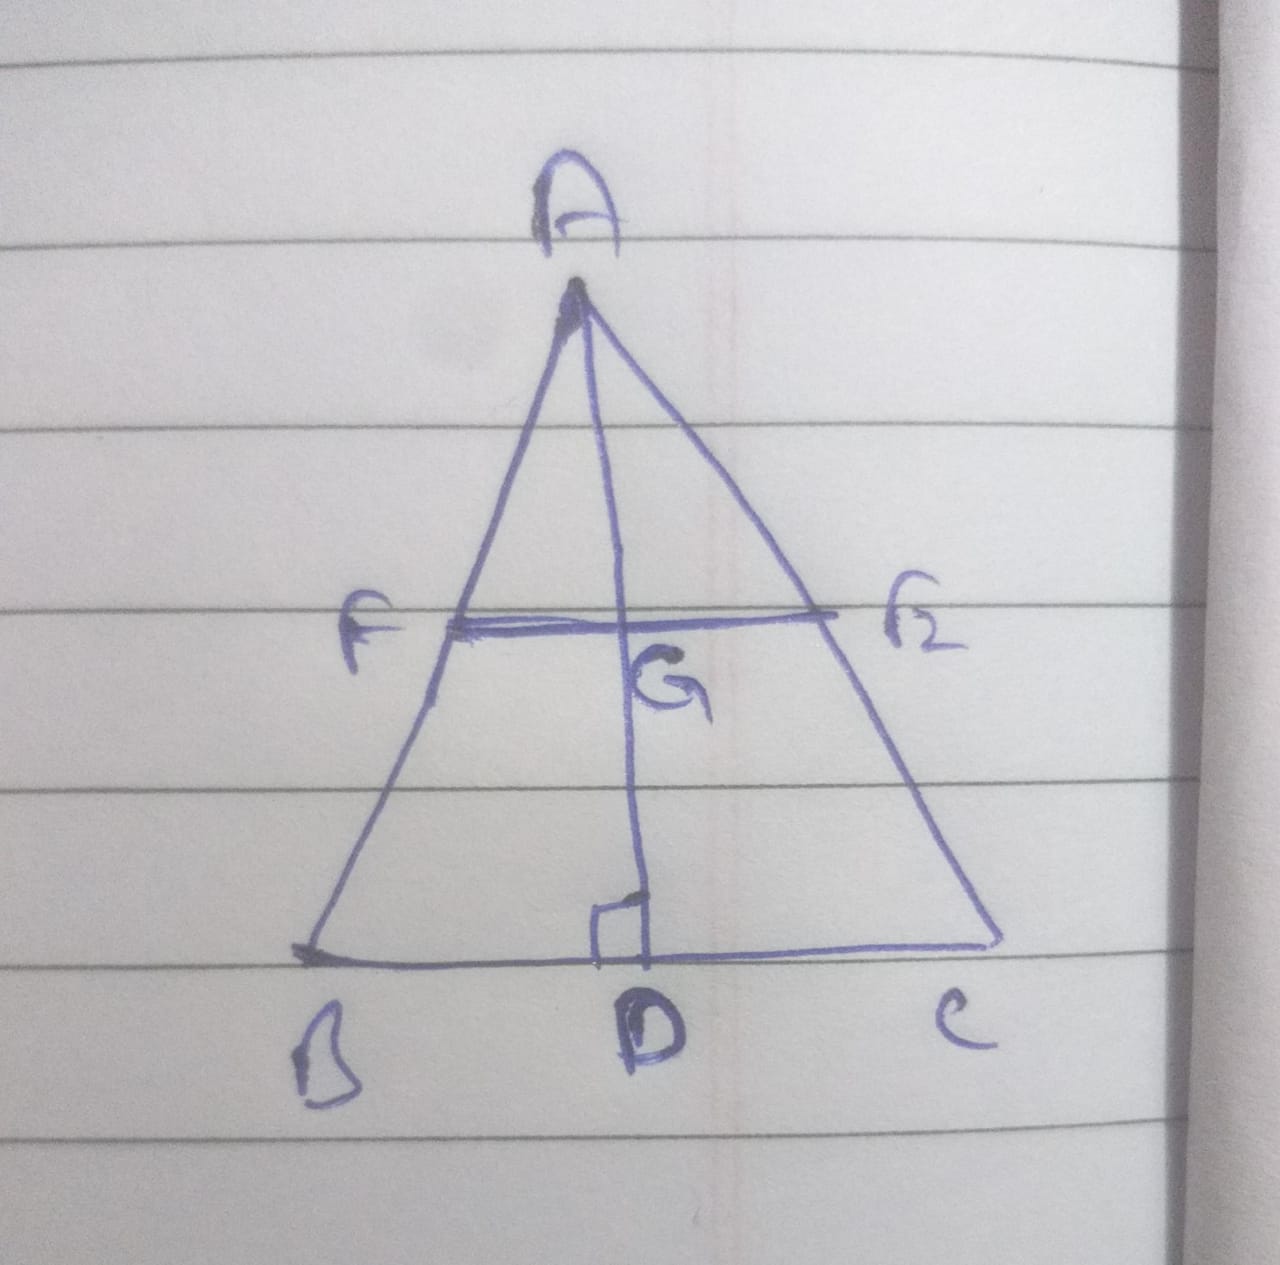 A
F E
G
B D C